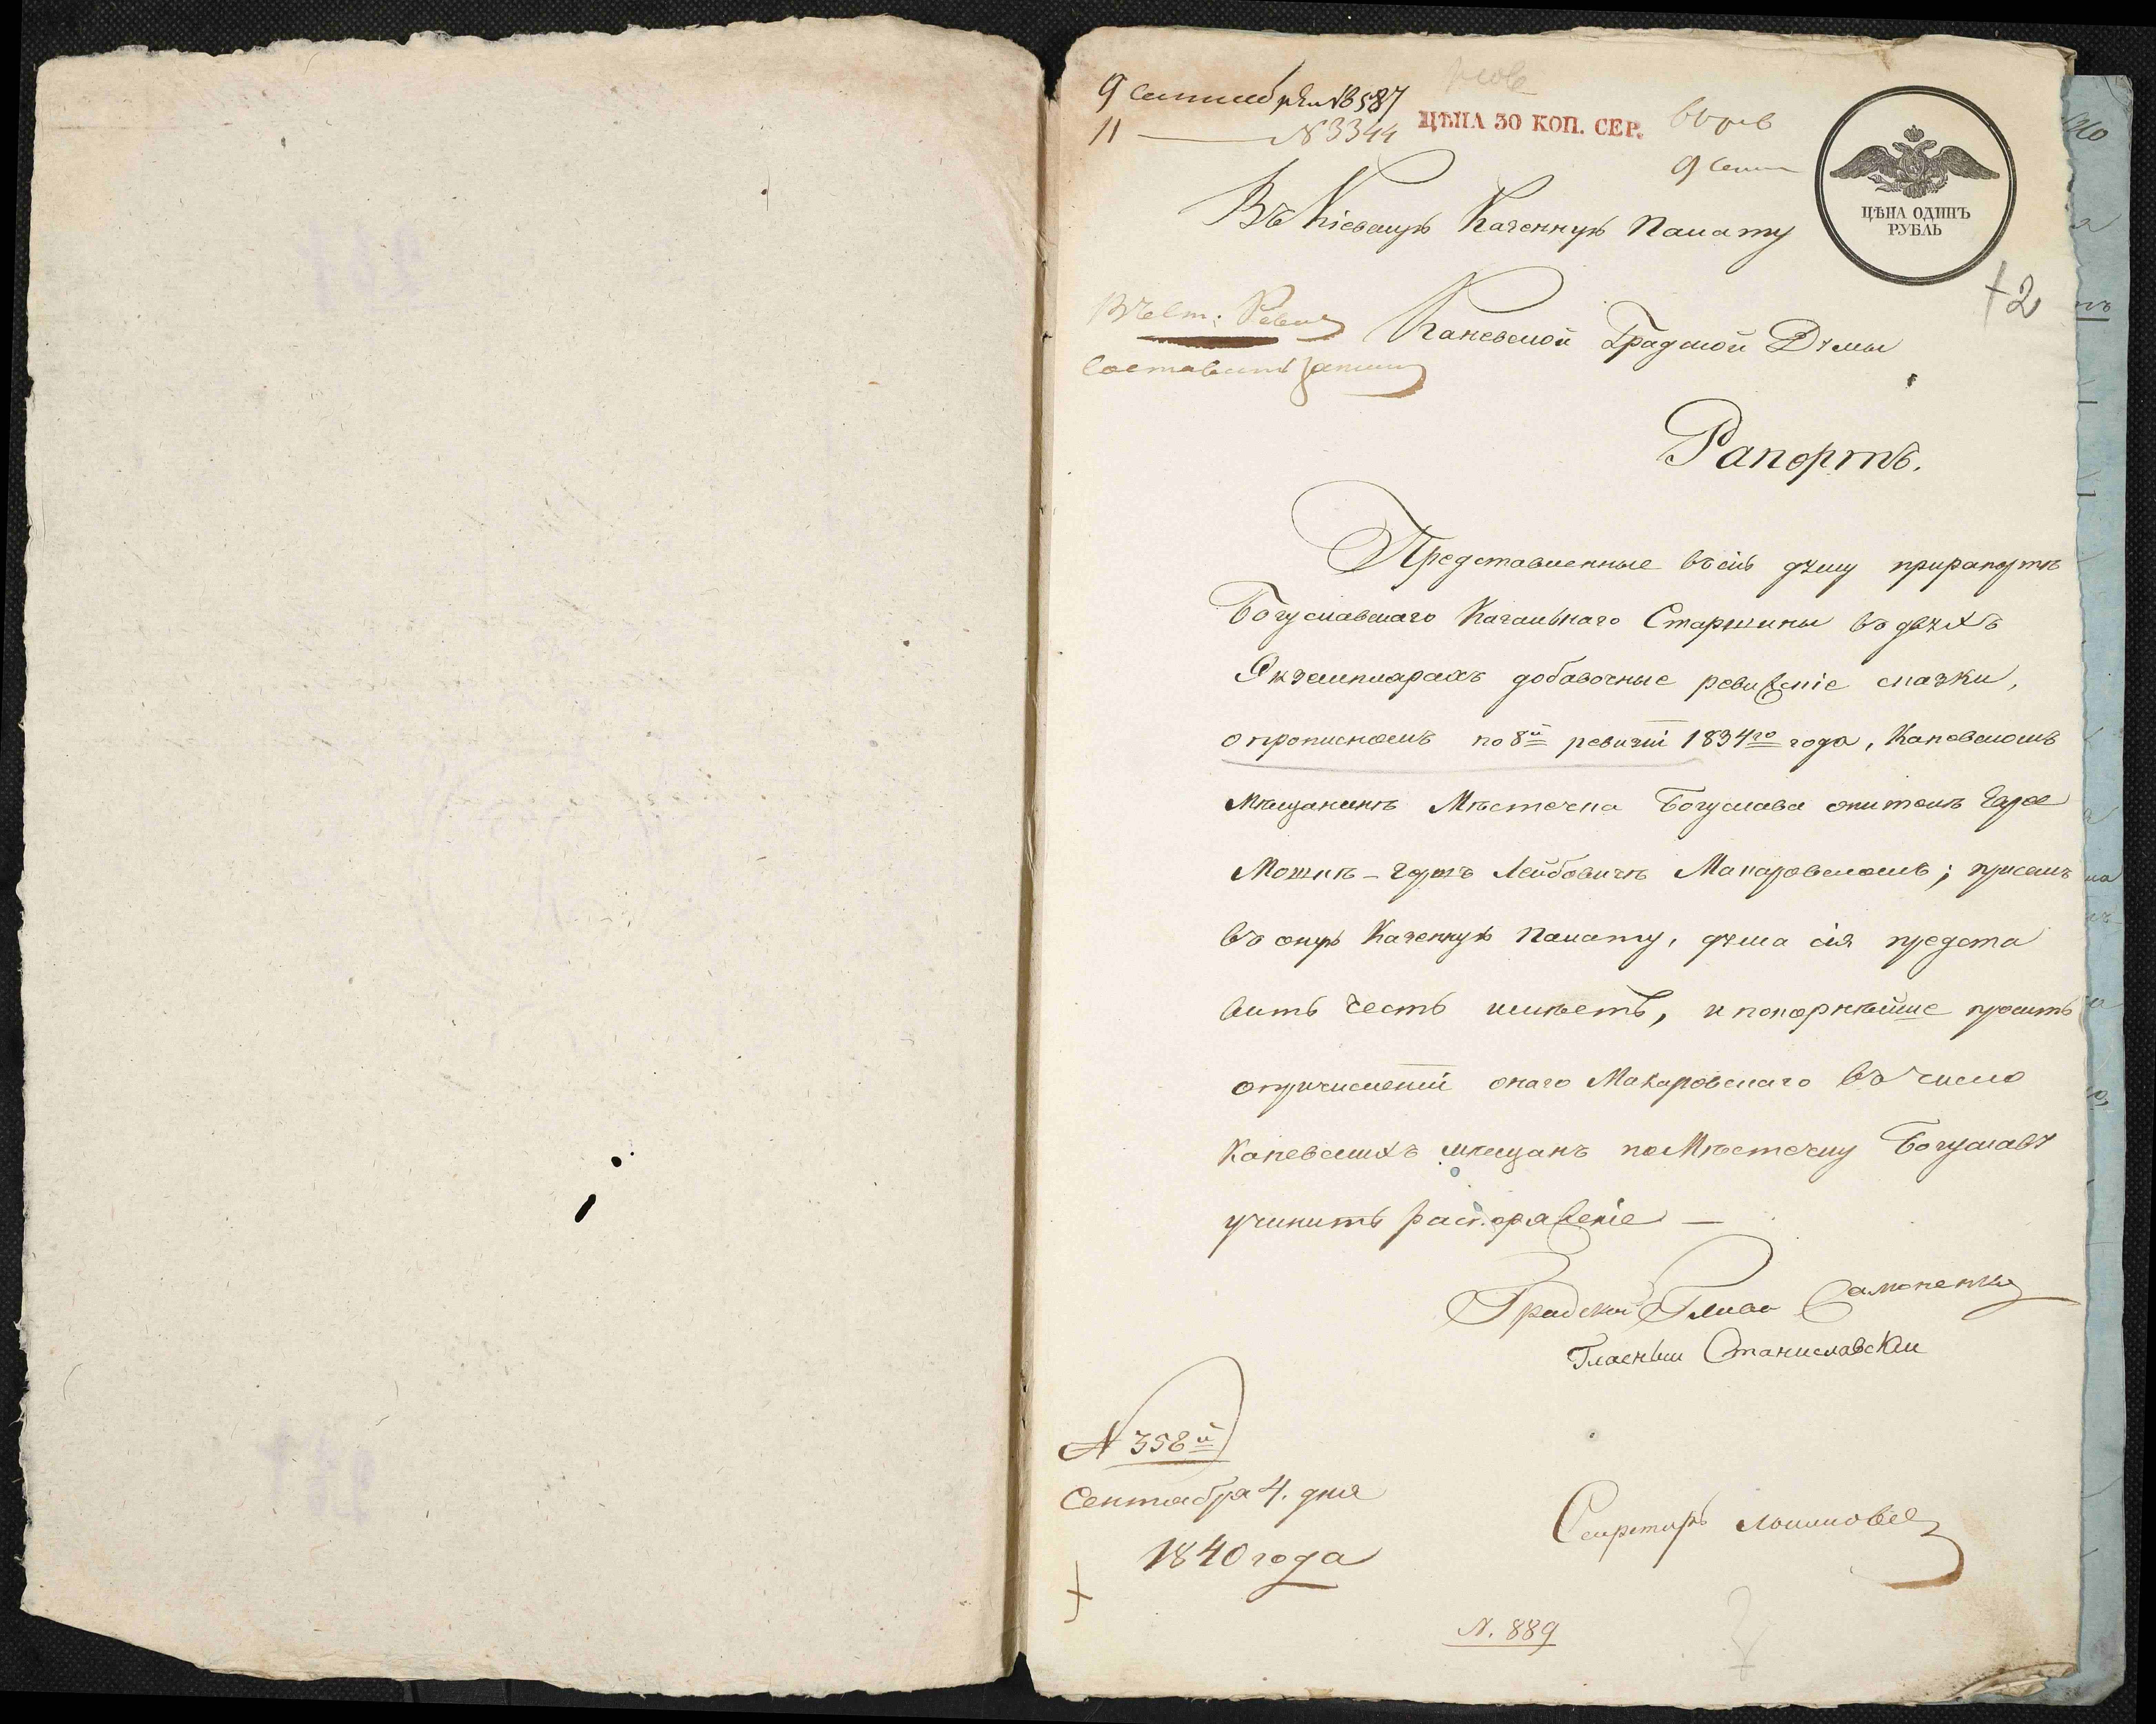 9 Сентября № 587
11 — № 3344
ЦѢНА 30 КОП. СЕР.
9 Сент
ЦѢНА ОДИНЪ
РУБЛЬ
Въ Кіевскую Казенную Палату
+2
Каневской Градской Думы
Составить
Рапортъ.
Представленные въ сію думу при рапортѣ
Богуславскаго Кагальнаго Старшины въ двухъ
Экземплярахъ добавочные ревизскіе сказки,
о прописномъ по 8й ревизіи 1834го года, Каневскомъ
Мѣщанинѣ Мѣстечка Богуслава
Мошкѣ-Герш Лейбовичѣ Макаровскомъ; при семъ
въ оную Казенную Палату, дума сія предста
вить честь имѣетъ, и покорнѣйше проситъ
о причисленіи онаго Макаровскаго въ число
Каневскихъ мѣщанъ по Мѣстечку Богуславу
учинить распоряженіе —
Градской Глава Самоненко
Гласный Станиславский
№ 358й
Сентября 4. дня
Секретарь
1840 года
№. 889